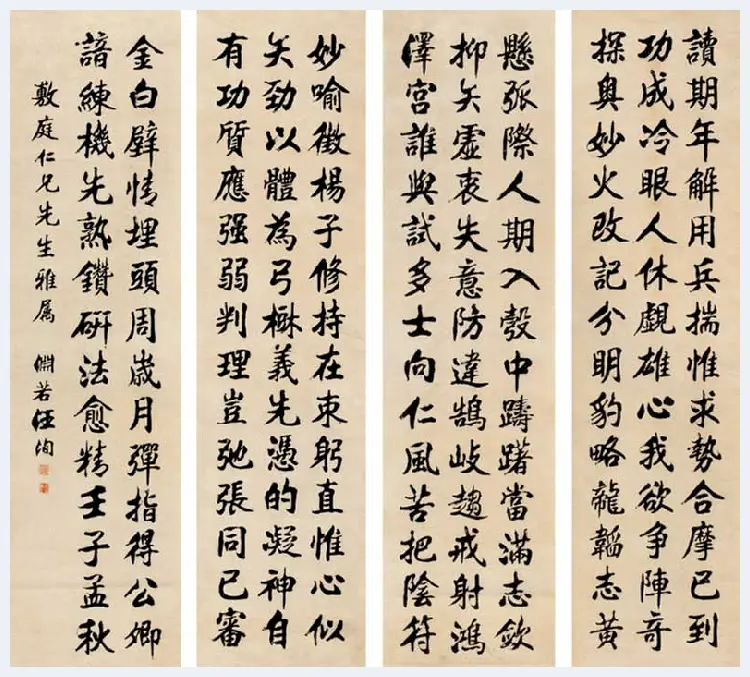 讀期年解用兵揣惟求勢合摩已到
功成冷眼人休覷雄心我欲爭陣奇
探奥妙火改記分明豹略龍韜志黄
懸弧際人期入彀中躊躇當滿志斂
抑矢虚衷失意防違鵠岐趨戒射鴻
澤宮誰與試多士向仁風苦把陰符
妙喻徵楊子修持在束躬直惟心似
矢勁以體為弓楙義先憑的凝神自
有功質應强弱判理豈弛張同已審
金白壁情埋頭周歲月彈指得公卿
諳練機先熟鑽研法愈精壬子孟秋
敷庭仁兄先生雅属 淵若汪洵